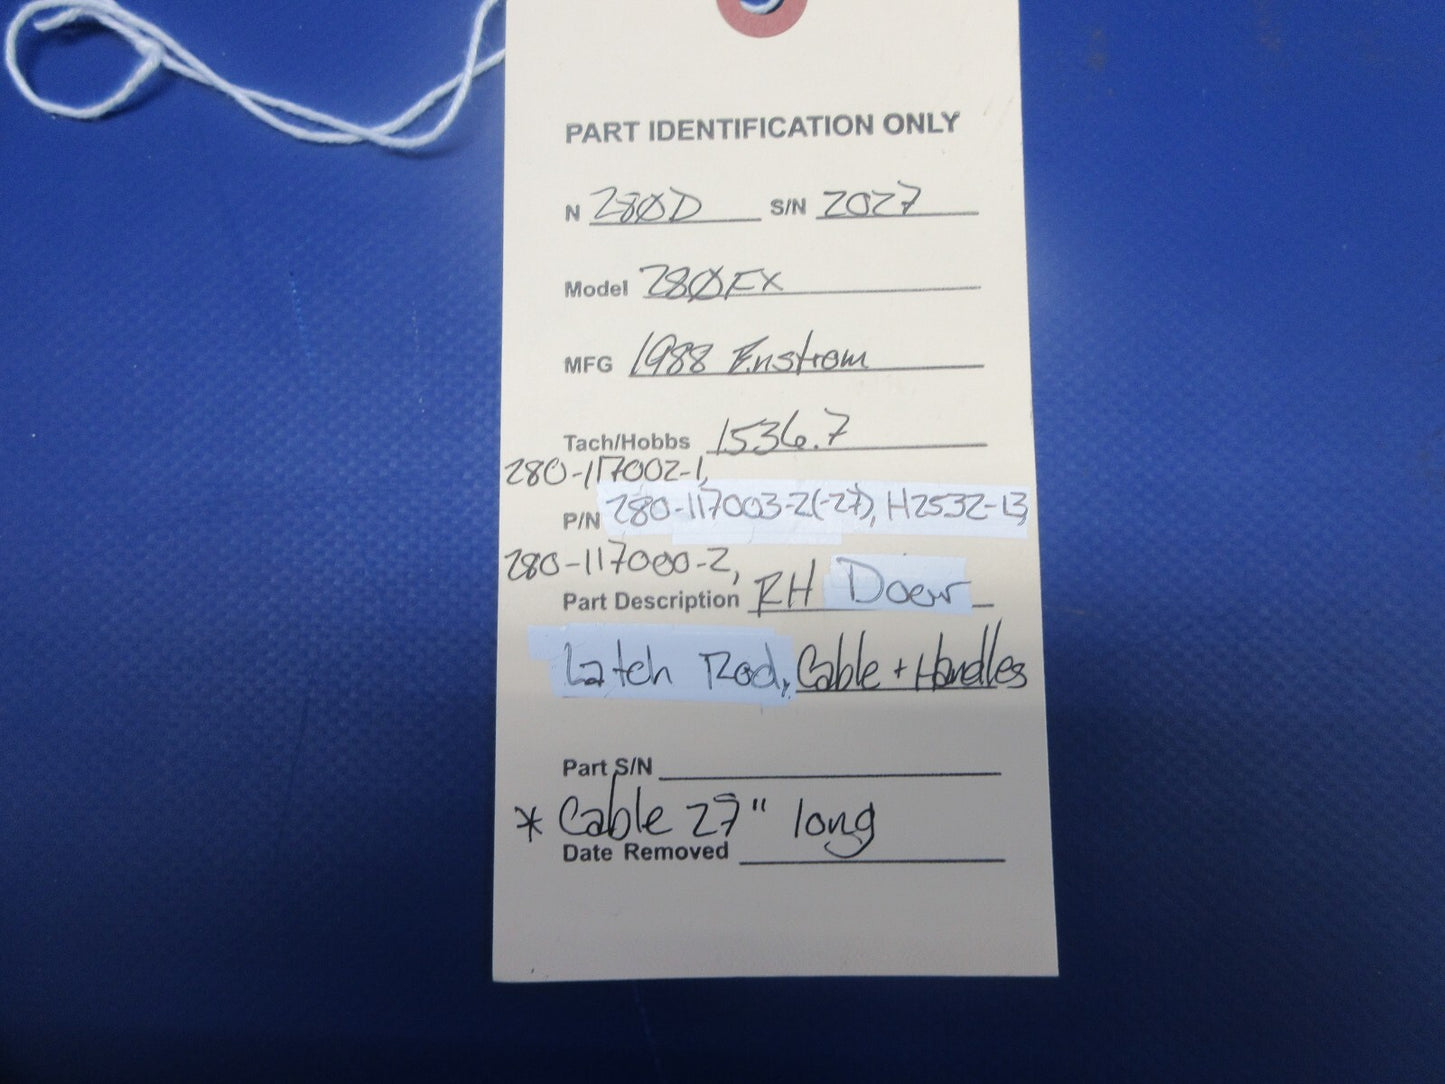 PART IDENTIFICATION ONLY
N 280D S/N 2027
Model 280FX
MFG 1988 Enstrom
Tach/Hobbs 1536.7
280-117002-1,
P/N 280-117003-2(-27), H2532-13,
280-117000-2,
Part Description RH Door
Latch Rod, Cable + Handles
Part S/N
* Cable 27" long
Date Removed